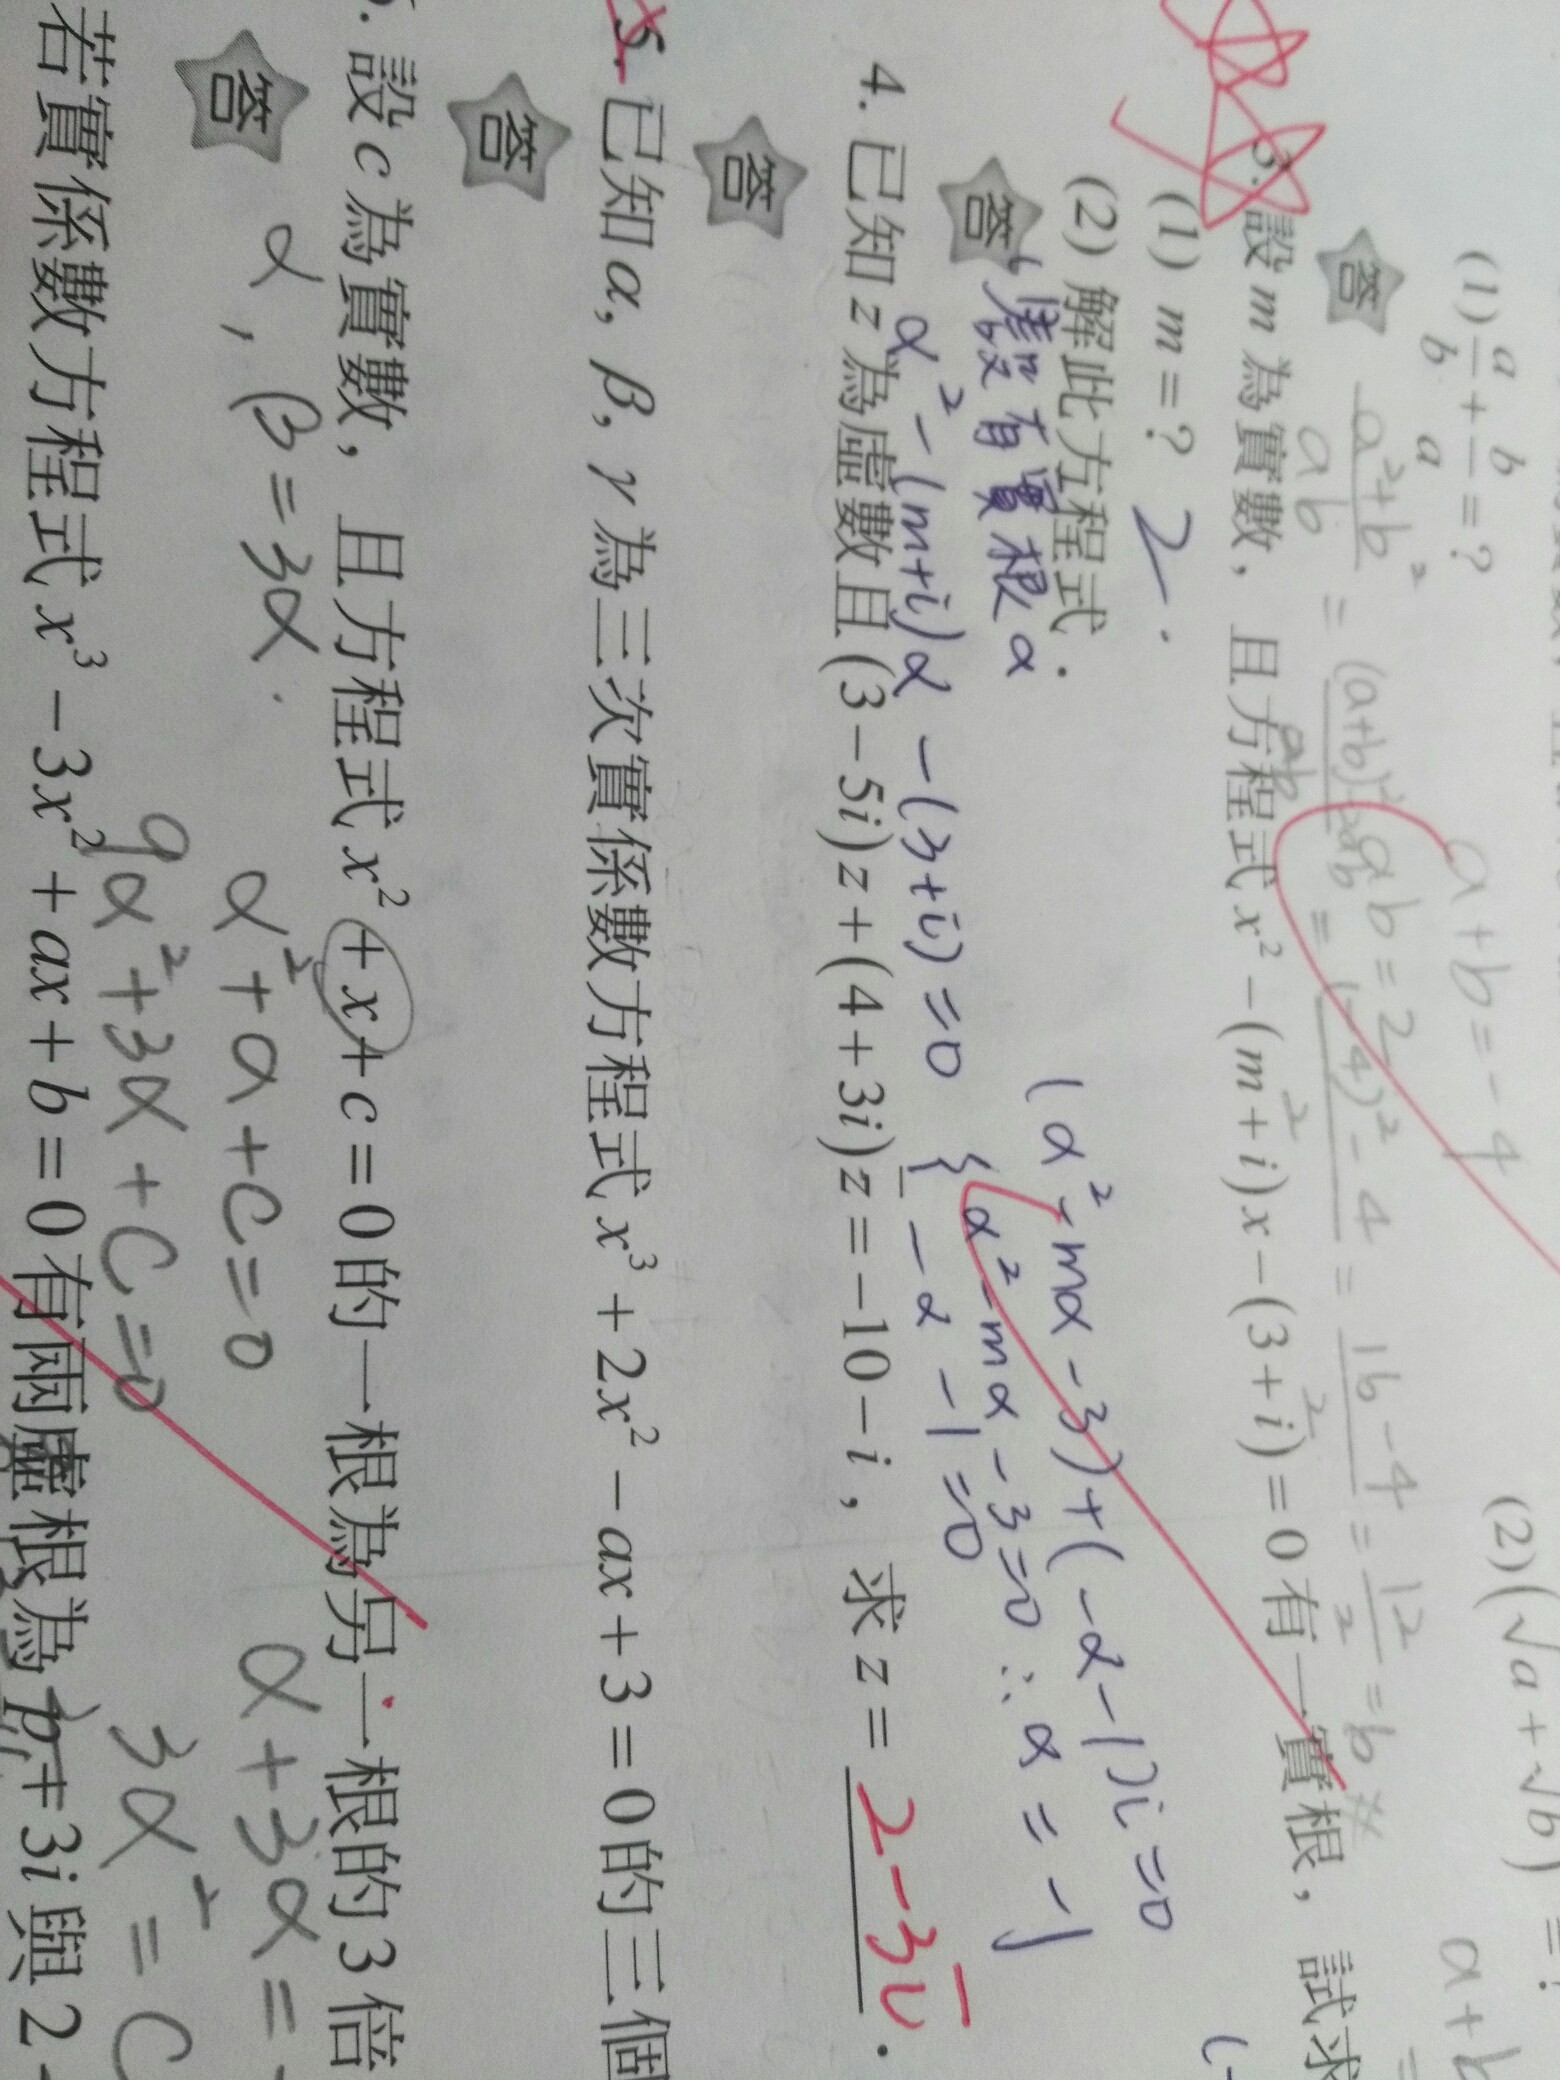 (1) a/b + b/a = ?
(2) (√a + √b) = ?
a+b=-4
a+b
ab=2
答
(a²+b²)/ab = ((a+b)²-2ab)/ab = ((-4)²-4)/2 = (16-4)/2 = 12/2 = 6 #
3. 設 m 為實數，且方程式 x² - (m + i)x - (3 + i) = 0 有一實根，試求
(1) m = ? 2
(2) 解此方程式．
答 假設有實根 α
α² - (m+i)α - (3+i) = 0
(α² - mα - 3) + (-α - 1)i = 0
{ α² - mα - 3 = 0 ∴ α = -1
-α - 1 = 0
4. 已知 z 為虛數且 (3 - 5i)z + (4 + 3i)z̅ = -10 - i，求 z = 2-3i．
答
5. 已知 α，β，γ 為三次實係數方程式 x³ + 2x² - ax + 3 = 0 的三個
答
設 c 為實數，且方程式 x² + x + c = 0 的一根為另一根的 3 倍
答 α，β=3α
α²+α+c=0
α+3α=-
9α²+3α+c=0
3α²=c
若實係數方程式 x³ - 3x² + ax + b = 0 有兩虛根為 p + 3i 與 2